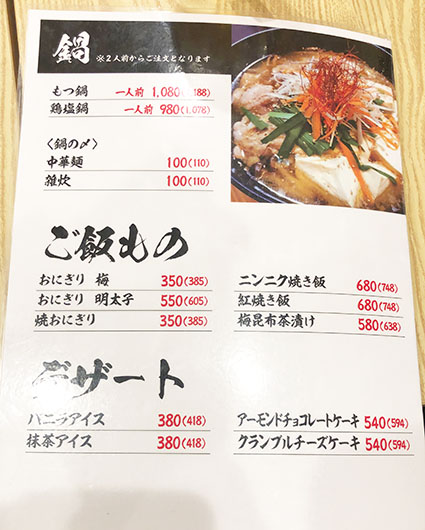 鍋 ※2人前からご注文となります
もつ鍋 一人前 1,080(1,188)
鶏塩鍋 一人前 980(1,078)
〈鍋の〆〉
中華麺 100(110)
雑炊 100(110)
ご飯もの
おにぎり 梅 350(385)
おにぎり 明太子 550(605)
焼おにぎり 350(385)
ニンニク焼き飯 680(748)
紅焼き飯 680(748)
梅昆布茶漬け 580(638)
デザート
バニラアイス 380(418)
抹茶アイス 380(418)
アーモンドチョコレートケーキ 540(594)
クランブルチーズケーキ 540(594)